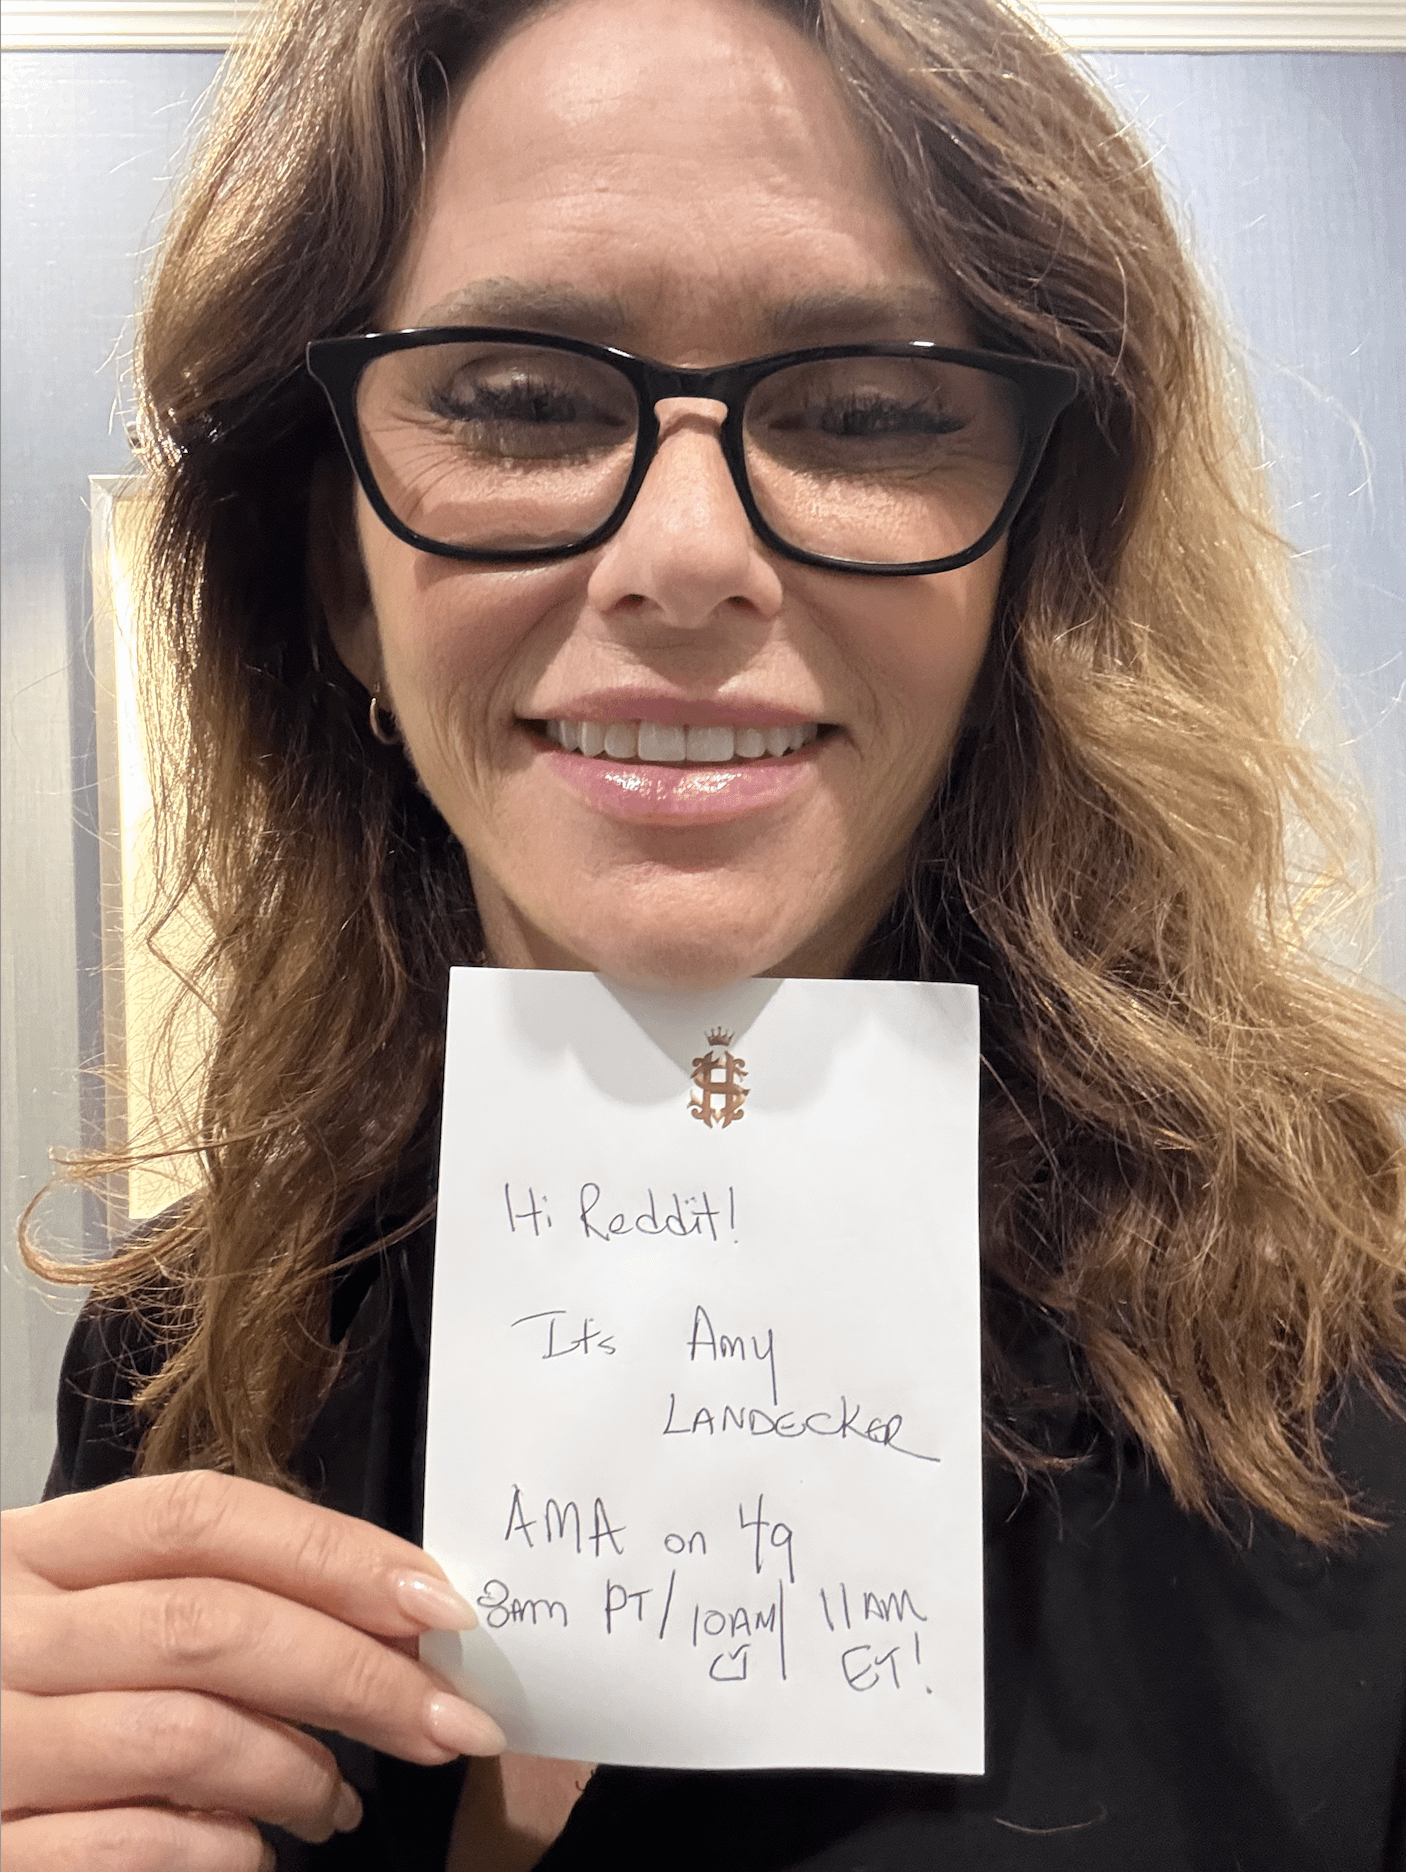 Hi Reddit!
Its Amy
LANDECKER
AMA on 4/9
8am PT/10AM/11AM
CT ET!